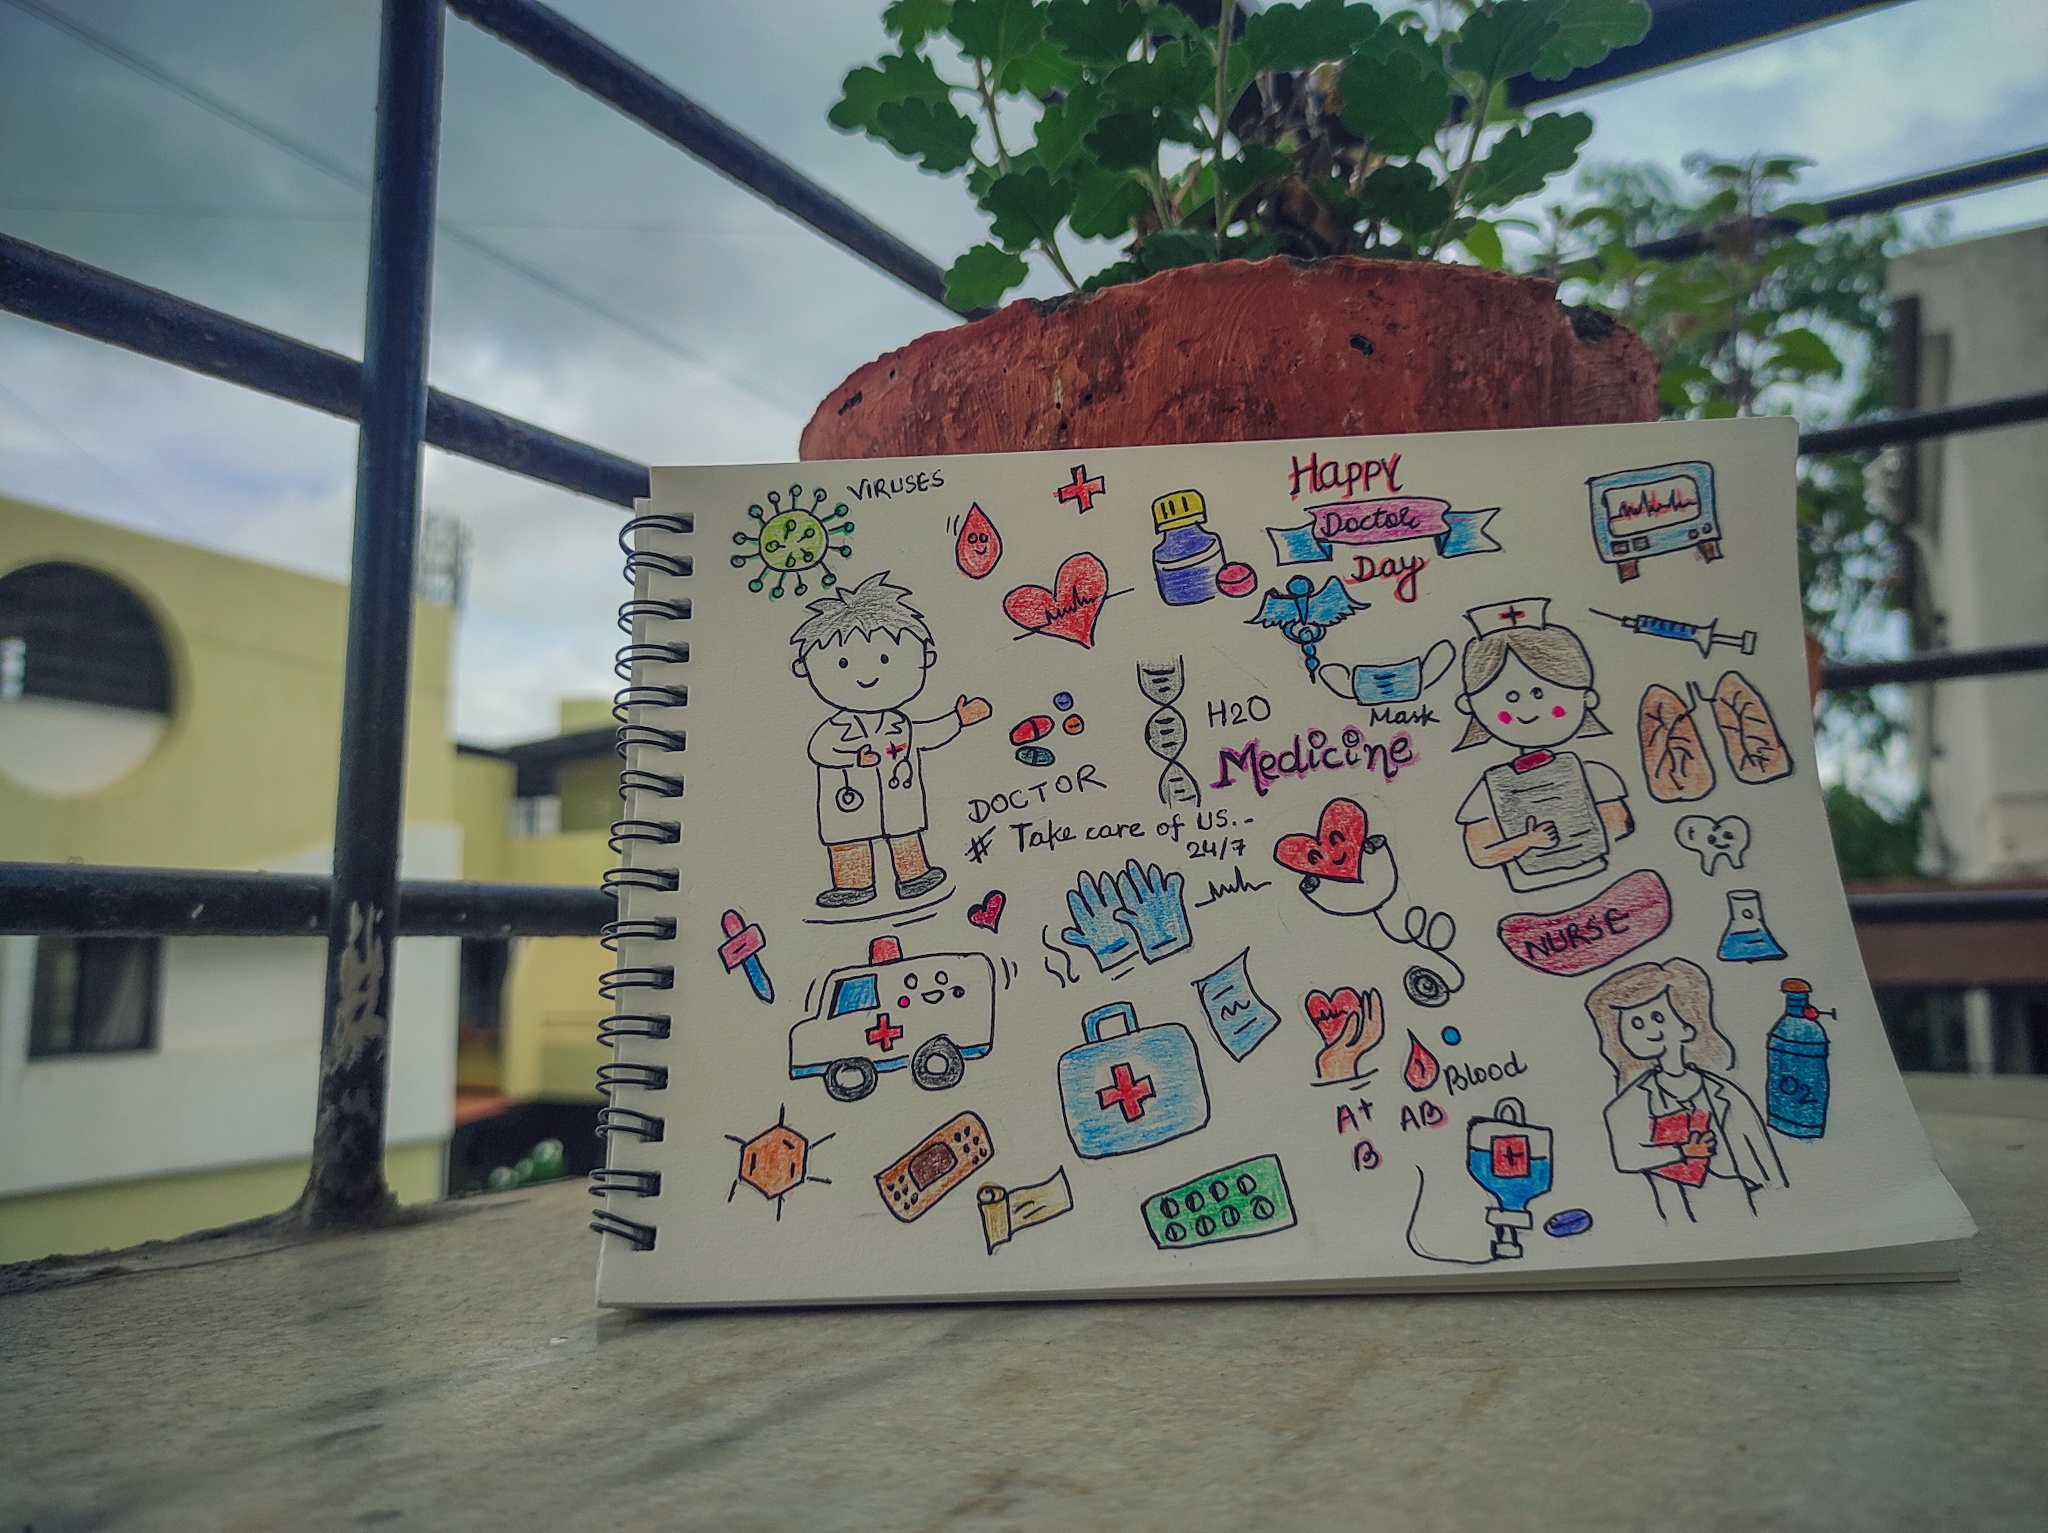 VIRUSES
Happy
Doctor
Day
Mask
H2O
Medicine
DOCTOR
# Take care of US..
24/7
NURSE
Blood
A+
AB
B
O2